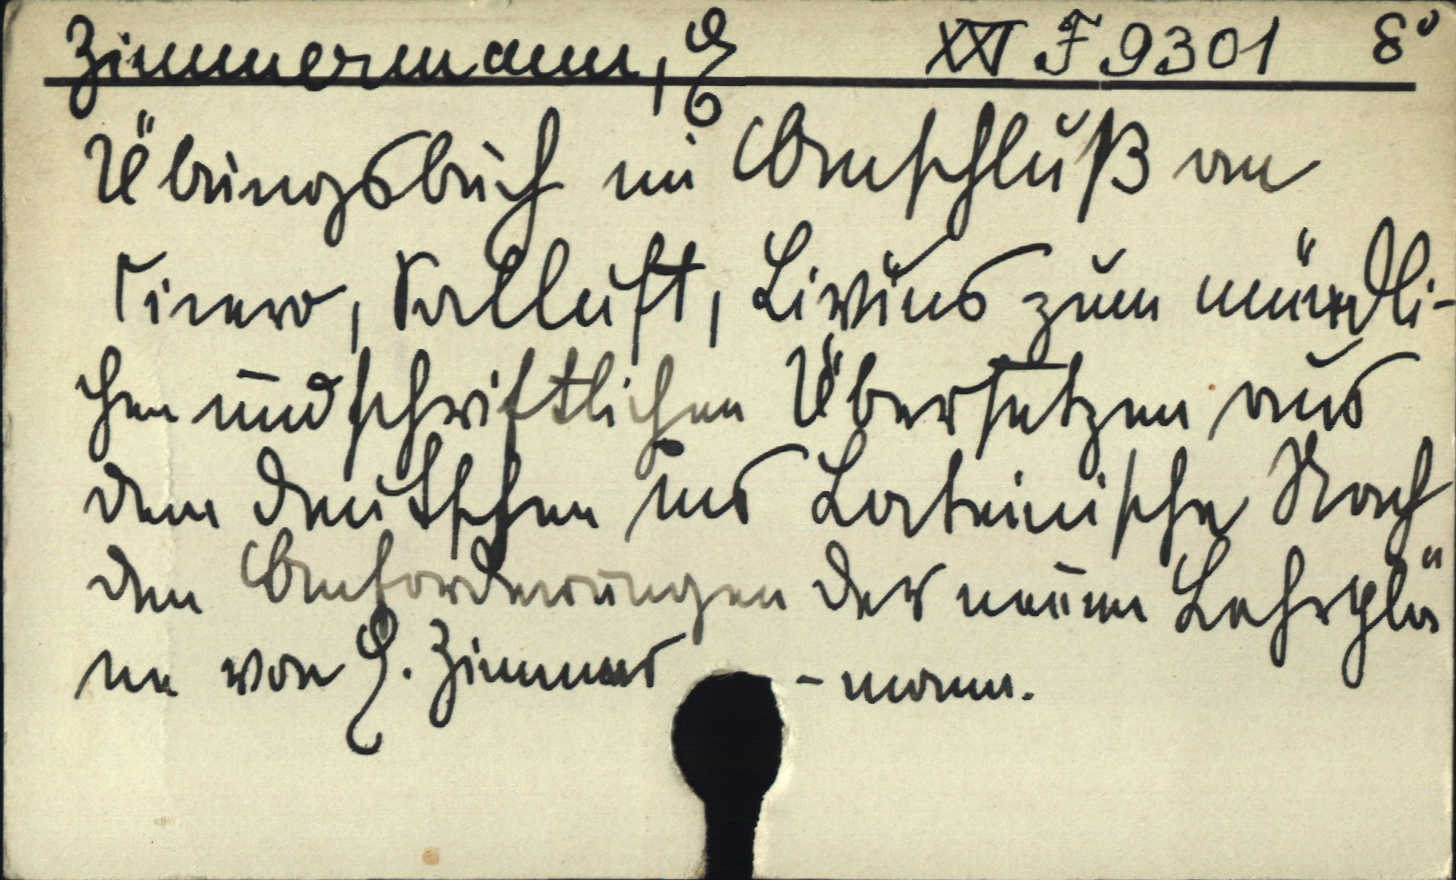 Zimmermann, E XXI F 9301 8°
Übungsbuch im Anschluß an
Cicero, Sallust, Livius zum mündli-
chen und schriftlichen Übersetzen aus
dem Deutschen ins Lateinische Nach
den Anforderungen der neuen Lehrplä
ne von E. Zimmer -mann.